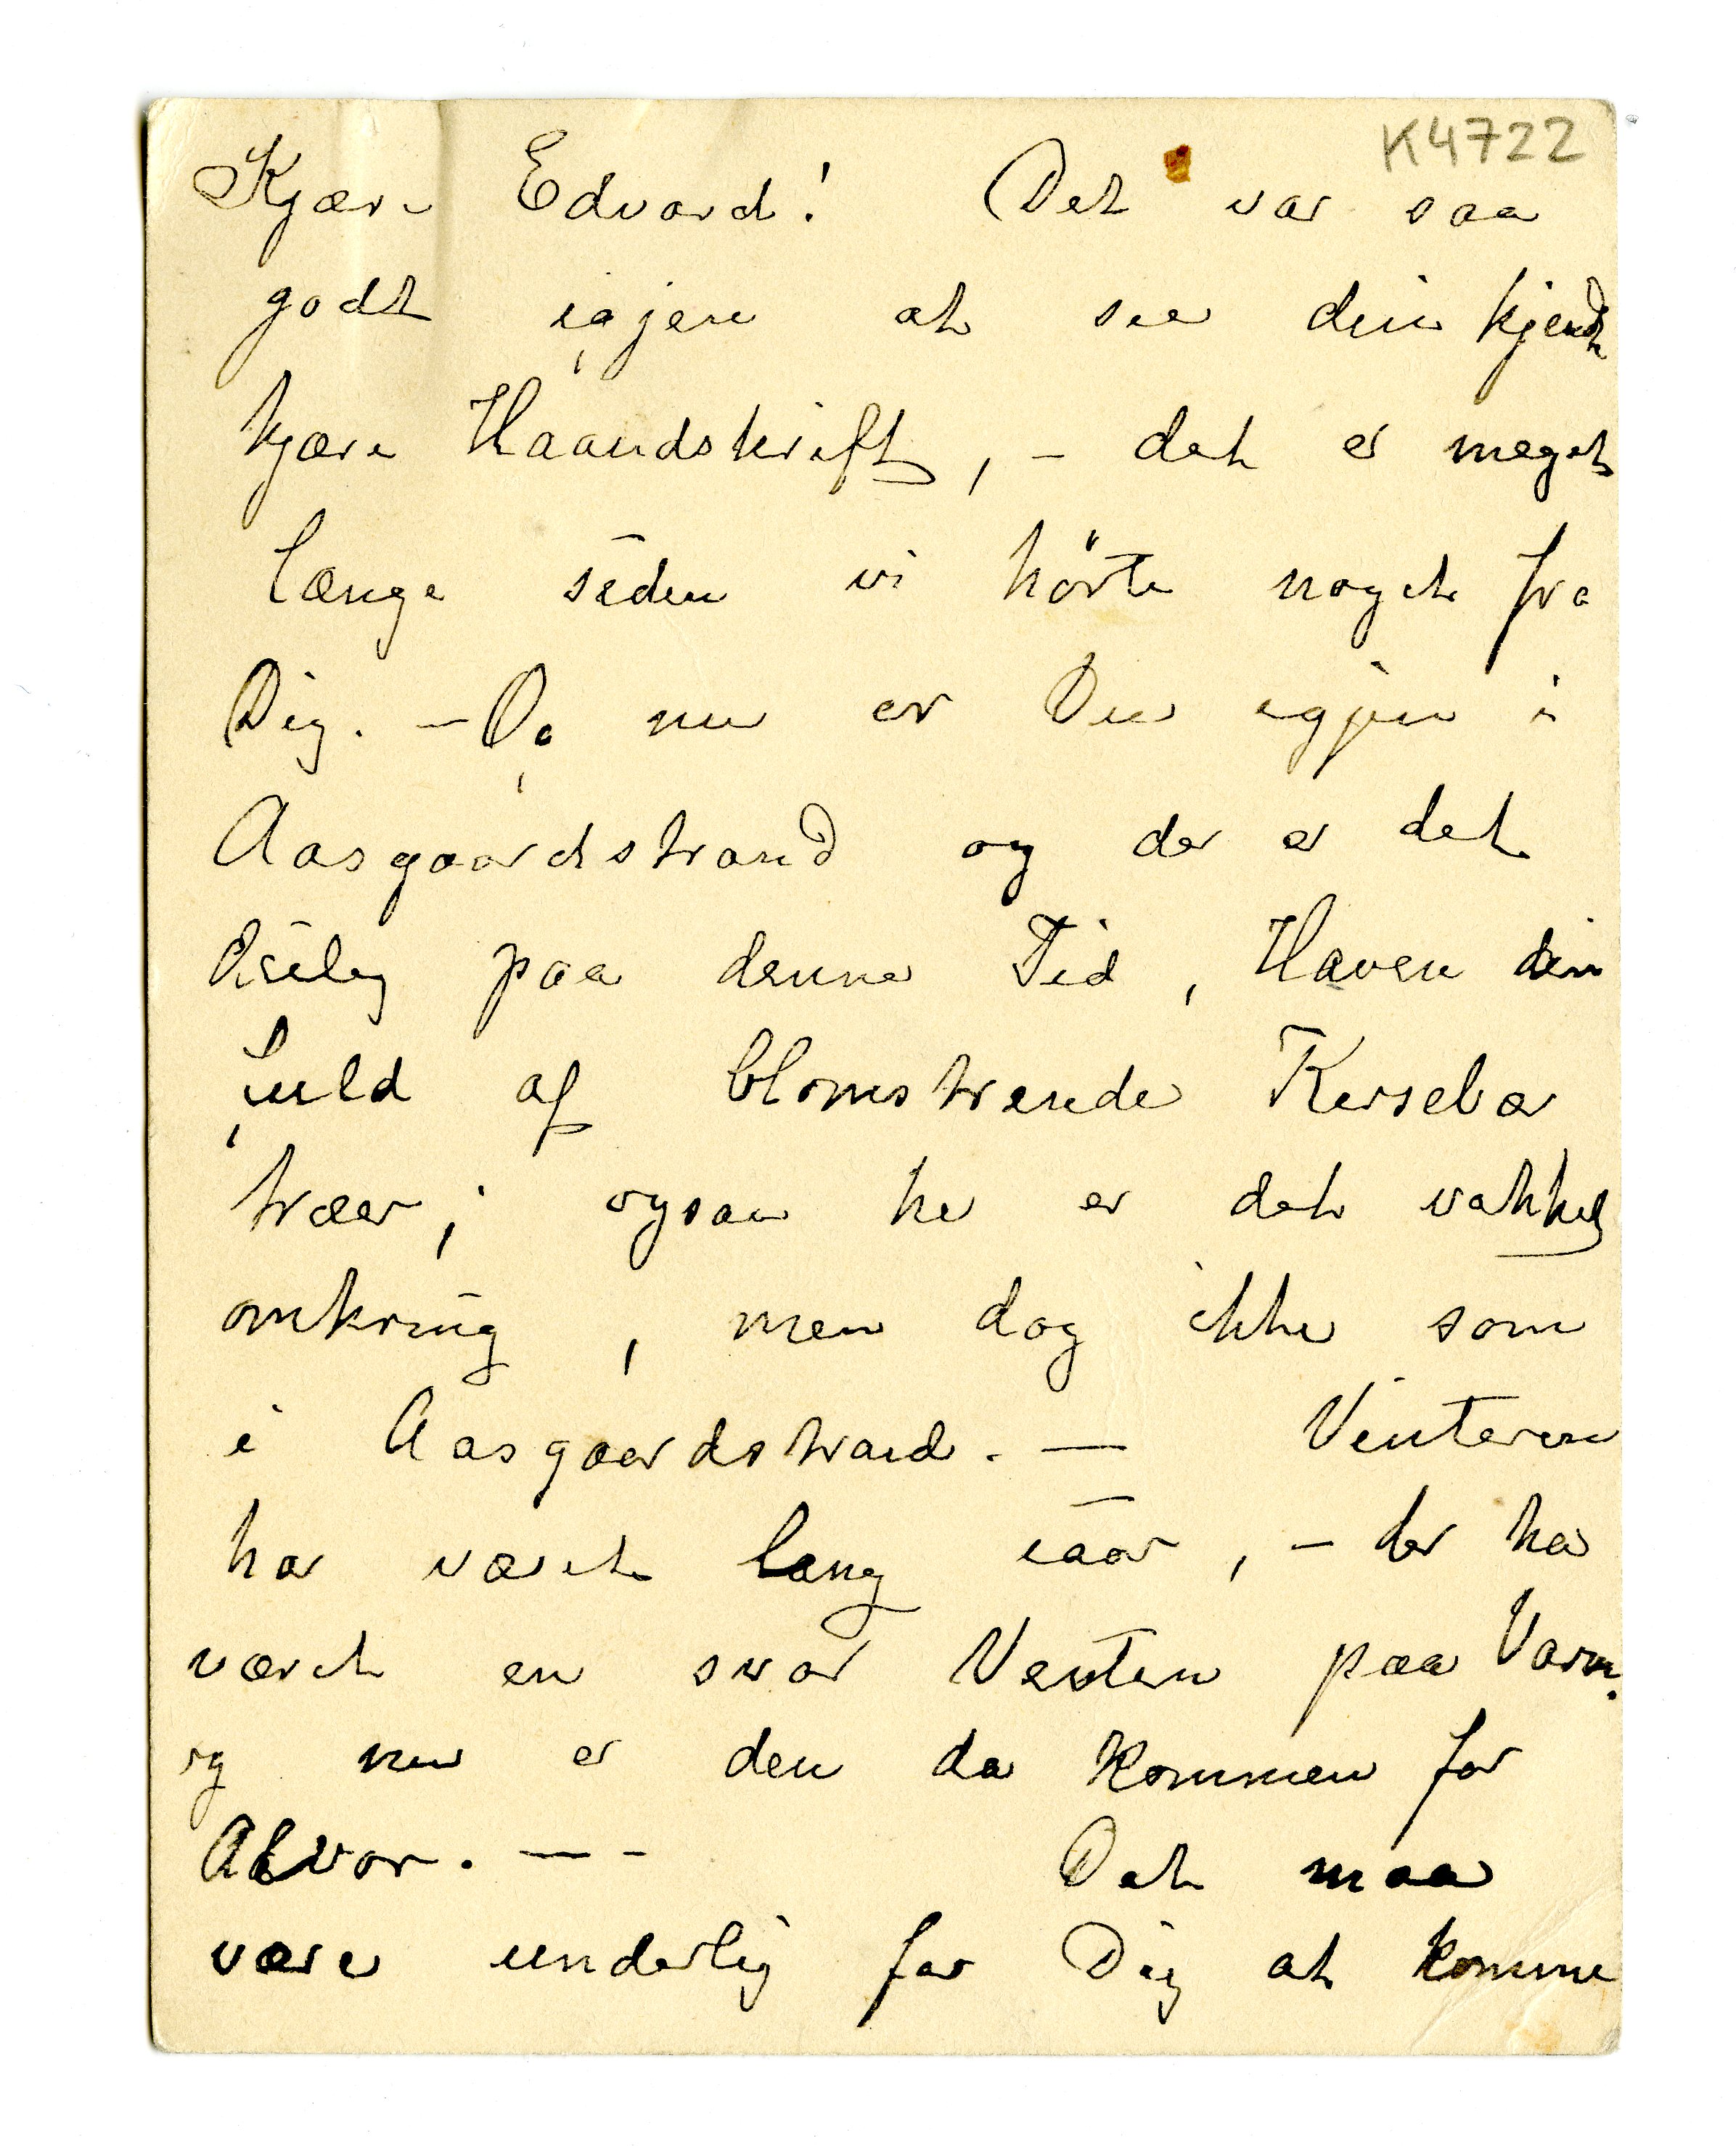 K4722
Kjære Edvard! Det var saa
godt igjen at see din kjendte
kjære Haandskrift, – det er meget
længe siden vi hörte noget fra
Dig. – Og nu er Du igjen i
Aasgaardstrand og der er det
deilig paa denne Tid, Haven din
fuld af blomstrende Kirsebær
træer; ogsaa her er det vakkert
omkring, men dog ikke som
i Aasgaardstrand. — Vinteren
har været lang iaar, – der har
været en svar Venten paa Varm.
og nu er den da kommen for
Alvor. — - Det maa
være underlig for Dig at komme